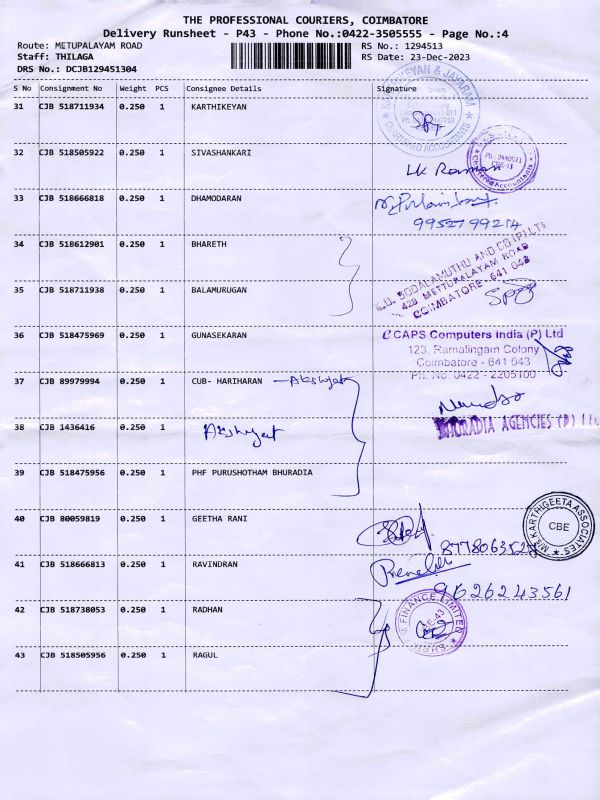 THE PROFESSIONAL COURIERS, COIMBATORE
Delivery Runsheet - P43 - Phone No.:0422-3505555 - Page No.:4
Route: METUPALAYAM ROAD
RS No.: 1294513
Staff: THILAGA
RS Date: 23-Dec-2023
DRS No.: DCJB129451304
S No Consignment No Weight PCS Consignee Details Signature
31 CJB 518711934 0.250 1 KARTHIKEYAN
32 CJB 518505922 0.250 1 SIVASHANKARI
33 CJB 518666818 0.250 1 DHAMODARAN
9952799214
34 CJB 518612901 0.250 1 BHARETH
E.U. SODALAMUTHU AND CO (P) LTD
428 METTUPALAYAM ROAD
COIMBATORE - 641 043
35 CJB 518711938 0.250 1 BALAMURUGAN
36 CJB 518475969 0.250 1 GUNASEKARAN
CAPS Computers India (P) Ltd
123, Ramalingam Colony
Coimbatore - 641 043
PH. NO. 0422 - 2205100
37 CJB 89979994 0.250 1 CUB- HARIHARAN
38 CJB 1436416 0.250 1
BHURADIA AGENCIES (P) LTD
39 CJB 518475956 0.250 1 PHF PURUSHOTHAM BHURADIA
40 CJB 80059819 0.250 1 GEETHA RANI
M/s KARTHIGEETA ASSOCIATES
CBE
41 CJB 518666813 0.250 1 RAVINDRAN
9626243561
42 CJB 518738053 0.250 1 RADHAN
FINANCE LIMITED
43 CJB 518505956 0.250 1 RAGUL